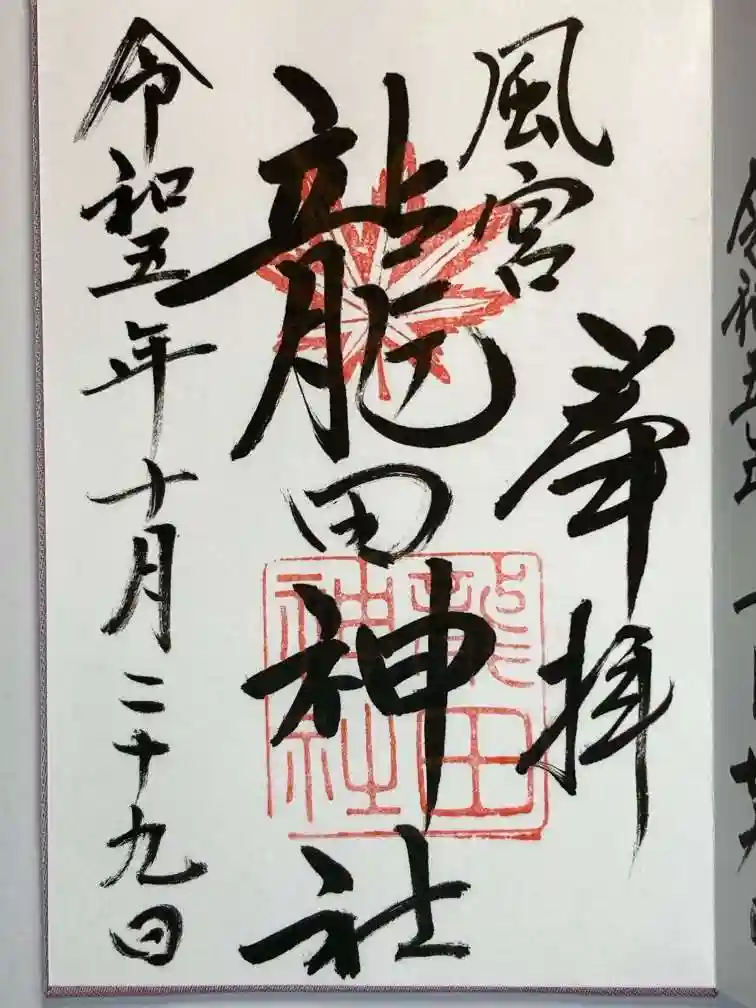 奉拝
風宮
龍田神社
龍田
神社
令和五年十月二十九日